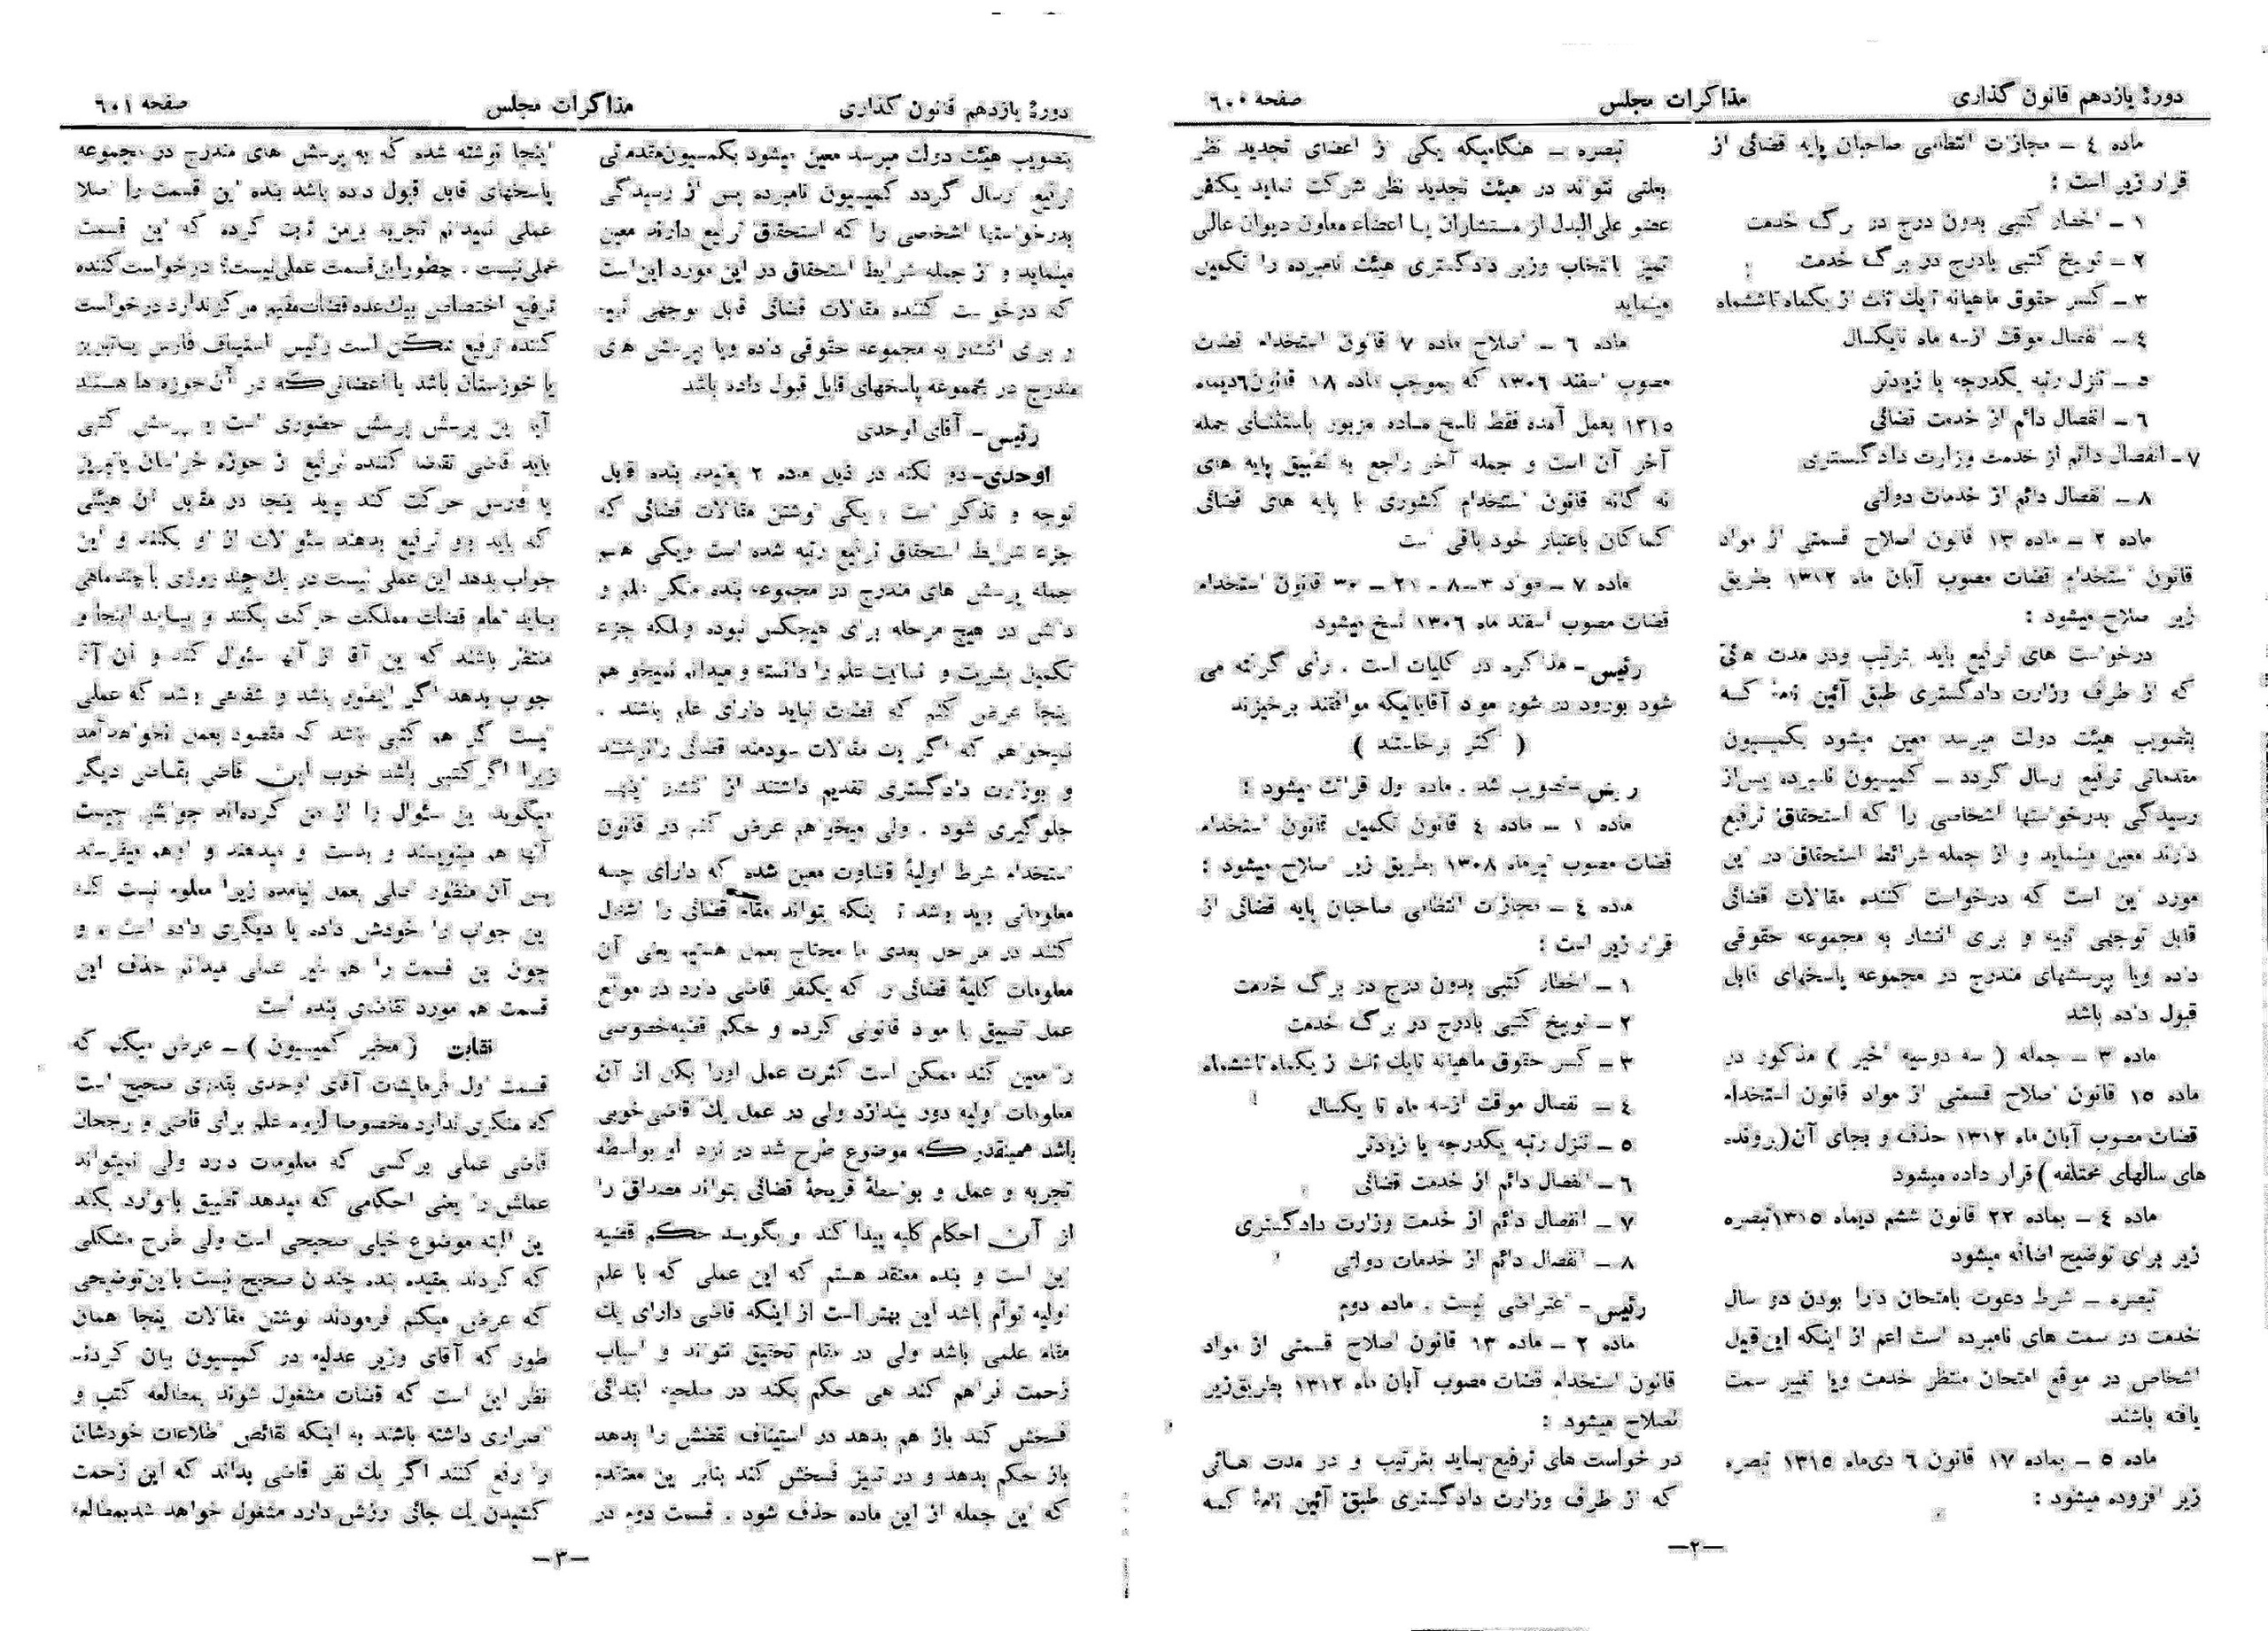 دورهٔ یازدهم قانون گذاری
مذاکرات مجلس
صفحه ٦٠٠
ماده ٤ – مجازات انتظامی صاحبان پایه قضائی از
قرار زیر است :
١ – اخطار کتبی بدون درج در برگ خدمت
٢ – توبیخ کتبی بادرج در برگ خدمت
٣ – کسر حقوق ماهیانه تایك ثلث از یکماه تاششماه
٤ – انفصال موقت ازسه ماه تایکسال
٥ – تنزل رتبه یکدرجه یا زیادتر
٦ – انفصال دائم از خدمت قضائی
٧ – انفصال دائم از خدمت وزارت دادگستری
٨ – انفصال دائم از خدمات دولتی
ماده ٢ – ماده ١٣ قانون اصلاح قسمتی از مواد
قانون استخدام قضات مصوب آبان ماه ١٣١٢ بطریق
زیر اصلاح میشود :
درخواست های ترفیع باید بترتیب ودر مدت هائی
که از طرف وزارت دادگستری طبق آئین نامهٔ کـه
بتصویب هیئت دولت میرسد معین میشود بکمیسیون
مقدماتی ترفیع ارسال گردد – کمیسیون نامبرده پس‌از
رسیدگی بدرخواستها اشخاصی را که استحقاق ترفیع
دارند معین مینماید و از جمله شرائط استحقاق در این
مورد این است که درخواست کننده مقالات قضائی
قابل توجهی تهیه و برای انتشار به مجموعه حقوقی
داده ویا بپرسشهای مندرج در مجموعه پاسخهای قابل
قبول داده باشد
ماده ٣ – جمله ( سه دوسیه اخیر ) مذکور در
ماده ١٥ قانون اصلاح قسمتی از مواد قانون استخدام
قضات مصوب آبان ماه ١٣١٢ حذف و بجای آن(پرونده
های سالهای مختلفه ) قرار داده میشود
ماده ٤ – بماده ٢٢ قانون ششم دیماه ١٣١٥تبصره
زیر برای توضیح اضافه میشود
تبصره – شرط دعوت بامتحان دارا بودن دو سال
خدمت در سمت های نامبرده است اعم از اینکه این‌قبیل
اشخاص در موقع امتحان منتظر خدمت ویا تغییر سمت
یافته باشند
ماده ٥ – بماده ١٧ قانون ٦ دی‌ماه ١٣١٥ تبصره
زیر افزوده میشود :
تبصره – هنگامیکه یکی از اعضای تجدید نظر
بعلتی نتواند در هیئت تجدید نظر شرکت نماید یکنفر
عضو علی‌البدل از مستشاران یـا اعضاء معاون دیوان عالی
تمیز بانتخاب وزیر دادگستری هیئت نامبرده را تکمیل
مینماید
ماده ٦ – اصلاح ماده ٧ قانون استخدام قضات
مصوب اسفند ١٣٠٦ که بموجب ماده ١٨ قانون٦دیماه
١٣١٥ بعمل آمده فقط ناسخ مـاده مزبور باستثنـای جمله
آخر آن است و جمله آخر راجع به تطبیق پایه های
نه گانه قانون استخدام کشوری با پایه های قضائی
کماکان باعتبار خود باقی است
ماده ٧ – مواد ٣–٨ - ٢١ – ٣٠ قانون استخدام
قضات مصوب اسفند ماه ١٣٠٦ نسخ میشود
رئیس – مذاکره در کلیات است . رأی گرفته می
شود بورود در شور مواد آقایانیکه موافقند برخیزند
( اکثر برخاستند )
رئیس – تصویب شد . ماده اول قرائت میشود :
ماده ١ – ماده ٤ قانون تکمیل قانون استخدام
قضات مصوب تیرماه ١٣٠٨ بطریق زیر اصلاح میشود :
ماده ٤ – مجازات انتظامی صاحبان پایه قضائی از
قرار زیر است :
١ – اخطار کتبی بدون درج در برگ خدمت
٢ – توبیخ کتبی بادرج در برگ خدمت
٣ – کسر حقوق ماهیانه تایك ثلث از یکماه تاششماه
٤ – انفصال موقت ازسه ماه تا یکسال
٥ – تنزل رتبه یکدرجه یا زیادتر
٦ – انفصال دائم از خدمت قضائی
٧ – انفصال دائم از خدمت وزارت دادگستری
٨ – انفصال دائم از خدمات دولتی
رئیس – اعتراضی نیست . ماده دوم
ماده ٢ – ماده ١٣ قانون اصلاح قسمتی از مواد
قانون استخدام قضات مصوب آبان ماه ١٣١٢ بطریق‌زیر
اصلاح میشود :
در خواست های ترفیع بـاید بترتیب و در مدت هـائی
که از طرف وزارت دادگستری طبق آئین نامهٔ کـه
–٢–
دورهٔ یازدهم قانون گذاری
مذاکرات مجلس
صفحه ٦٠١
بتصویب هیئت دولت میرسد معین میشود بکمسیون‌مقدماتی
ترفیع ارسال گردد کمیسیون نامبرده پس از رسیدگی
بدرخواستها اشخصی را که استحقاق ترفیع دارند معین
مینماید و از جمله شرایط استحقاق در این مورد این‌است
که درخواست کننده مقالات قضائی قابل توجهی تهیه
و برای انتشار به مجموعه حقوقی داده ویا پرسش های
مندرج در مجموعه پاسخهای قابل قبول داده باشد
رئیس – آقای اوحدی
اوحدی– دو نکته در ذیل ماده ٢ بعقیده بنده قابل
توجه و تذکر است ، یکی نوشتن مقالات قضائی که
جزء شرایط استحقاق ترفیع رتبه شده است ویکی هـم
جمله پرسش های مندرج در مجموعه بنده منکر علم و
دانش در هیچ مرحله برای هیچکس نبوده و بلکه جزء
تکمیل بشریت و انسانیت علم را دانسته و میدانم نمیخواهم
اینجا عرض کنم که قضات نباید دارای علم باشند .
نمیخواهم که اگر یك مقالات سودمند قضائی رانوشتند
و بوزارت دادگستری تقدیم داشتند از انتشار اینهـا
جلوگیری شود . ولی میخواهم عرض کنم در قانون
استخدام شرط اولیهٔ قضاوت معین شده که دارای چـه
معلوماتی باید باشد ؟ اینکه بتواند مقام قضائی را اشغال
کنند در مراحل بعدی ما محتاج بعمل هستیم یعنی آن
معلومات کلیهٔ قضائی را که یکنفر قاضی دارد در موقع
عمل تطبیق با مواد قانونی کرده و حکم قضیه‌خصوصی
را معین کند ممکن است کثرت عمل اورا یکی از آن
معلومات اولیه دور بیندازد ولی در عمل یك قاضی‌خوبی
باشد همینقدر که موضوع طرح شد در نزد او بواسطه
تجربه و عمل و بواسطهٔ قریحهٔ قضائی بتواند مصداق را
از آن احکام کلیه پیدا کند و بگویـد حکم قضیه
این است و بنده معتقد هستم که این عملی که با علم
اولیه توأم باشد این بهتر است از اینکه قاضی دارای یك
مقام علمی باشد ولی در مقام تحقیق نتواند و اسباب
زحمت فراهم کند هی حکم بکند در صلحیه ابتدائی
فسخش کند باز هم بدهد در استیناف نقضش را بدهد
باز حکم بدهد و در تمیز فسخش کند بنابر این معتقدم
که این جمله از این ماده حذف شود . قسمت دوم در
اینجا نوشته شده که به پرسش های مندرج در مجموعه
پاسخهای قابل قبول داده باشد بنده این قسمت را اصلا
عملی نمیدانم تجربه برمن ثابت کرده که این قسمت
عملی‌نیست . چطوراین‌قسمت عملی‌نیست؟ درخواست‌کننده
ترفیع اختصاص بیك‌عده قضات‌مقیم مرکزندارد درخواست
کننده ترفیع ممکن است رئیس استیناف فارس یـاتبریز
یا خوزستان باشد یا اعضائی‌که در آن‌حوزه ها هستند
آیا این پرسش پرسش حضوری است یا پرسش کتبی
باید قاضی تقاضا کننده ترفیع از حوزه خراسان یاتبریز
یا فارس حرکت کند بیاید اینجا در مقابل آن هیئتی
که باید باو ترفیع بدهند سئوالات از او بکنند و این
جواب بدهد این عملی نیست در یك چند روزی یا چندماهی
بـاید تمام قضات مملکت حرکت بکنند و بیـایند اینجا و
منتظر باشند که این آقا از آنها سئوال کند و آن آقا
جواب بدهد اگر اینطور باشد و شفاهی باشد که عملی
نیست اگر هم کتبی باشد که مقصود بعمل نخواهدآمد
زیرا اگرکتبی باشد خوب این قاضی بقاضی دیگر
میگوید این سئوال را از من کرده‌اند جوابش چیست
آنها هم مینویسند و بدست او میدهند و اوهم میفرستد
پس آن منظور اصلی بعمل نیامده زیرا معلوم نیست که
این جواب را خودش داده یا دیگری داده است و
چون این قسمت را هم غیر عملی میدانم حذف این
قسمت هم مورد تقاضای بنده است
نقابت ( مخبر کمیسیون ) – عرض میکنم که
قسمت اول فرمایشات آقای اوحدی بقدری صحیح است
که منکری ندارد مخصوصا لزوم علم برای قاضی و رجحان
قاضی عملی برکسی که معلومات دارد ولی نمیتواند
عملش را یعنی احکامی که میدهد تطبیق باموارد بکند
این البته موضوع خیلی صحیحی است ولی طرح مشکلی
که کردند بعقیده بنده چندان صحیح نیست بااین‌توضیحی
که عرض میکنم فرمودند نوشتن مقالات اینجا همان
طور که آقای وزیر عدلیه در کمیسیون بیان کردنـد
نظر این است که قضات مشغول شوند بمطالعه کتب و
اصراری داشته باشند به اینکه نقائص اطلاعات خودشان
را رفع کنند اگر یك نفر قاضی بداند که این زحمت
کشیدن یك جائی ارزش دارد مشغول خواهد شدبمطالعه
–٣–